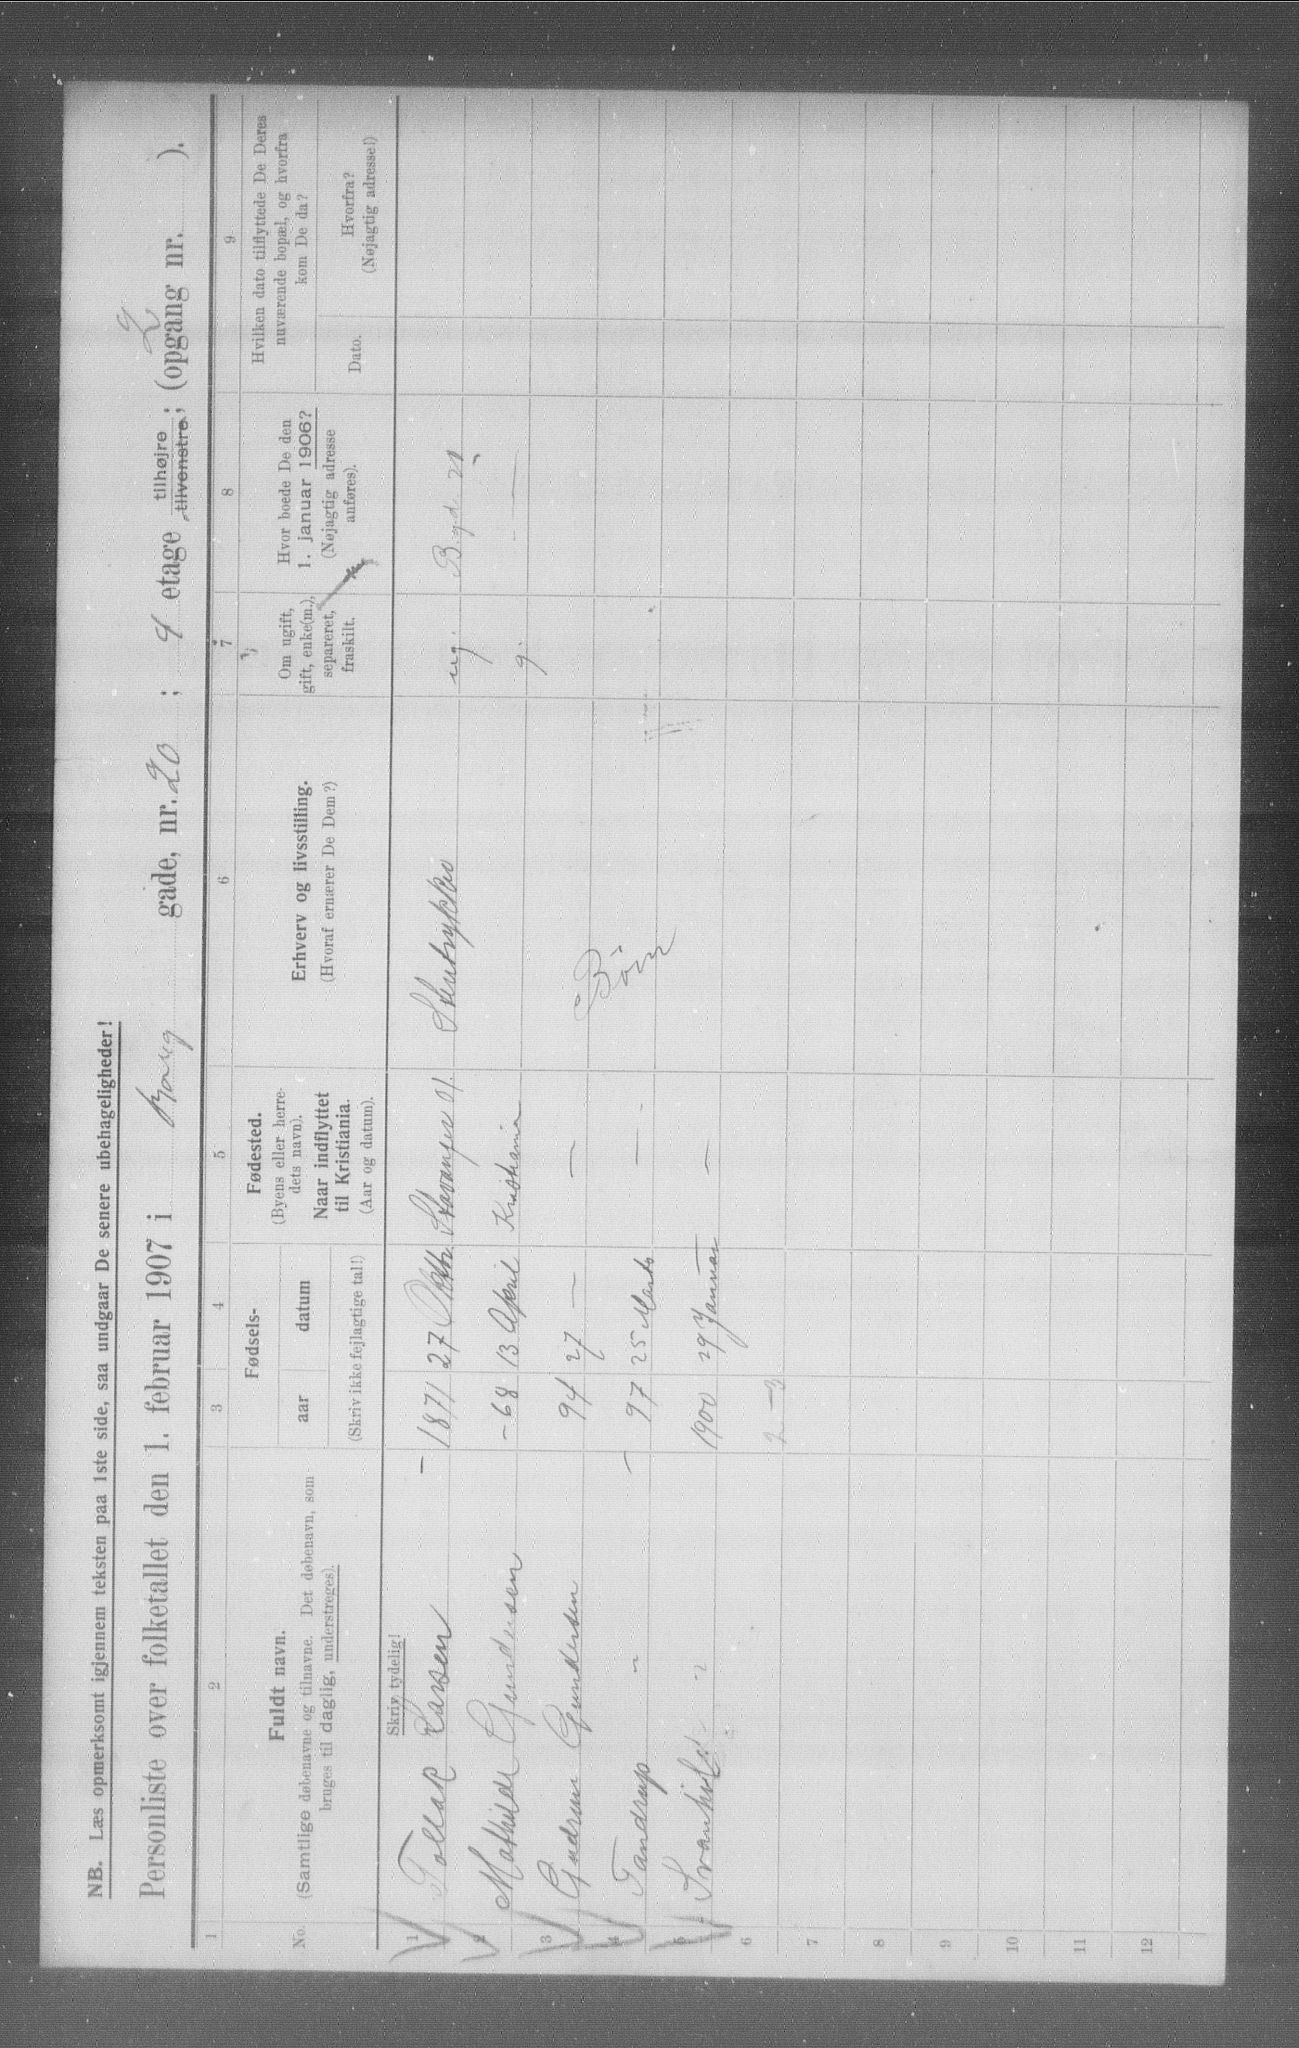 NB. Læs opmerksomt igjennem teksten paa 1ste side, saa undgaar De senere ubehageligheder!
Personliste over folketallet den 1. februar 1907 i Borg gade, nr. 20 ; 4 etage tilhøjre ; (opgang nr. ).
tilvenstre; 2
1 2 3 4 5 6 7 8 9
No.
Fuldt navn.
(Samtlige døbenavne og tilnavne. Det døbenavn, som
bruges til daglig, understreges).
Fødsels-
aar datum
(Skriv ikke fejlagtige tal!)
Fødested.
(Byens eller herre-
dets navn).
Naar indflyttet
til Kristiania.
(Aar og datum).
Erhverv og livsstilling.
(Hvoraf ernærer De Dem?)
Om ugift,
gift, enke(m.),
separeret,
fraskilt.
Hvor boede De den
1. januar 1906?
(Nøjagtig adresse
anføres).
Hvilken dato tilflyttede De Deres
nuværende bopæl, og hvorfra
kom De da?
Dato.
Hvorfra?
(Nøjagtig adresse!)
Skriv tydelig!
1 Tollak Larsen - 1871 27 Stavanger ug.
2 Mathilde Gundersen - 68 13 April Kristiania g.
3 Gudrun Gundersen 94 27 — — Børn
4 Tandrup " 97 25 Marts —
5 Svanhild " 1900 29 Januar —
6 2 - 3
7
8
9
10
11
12